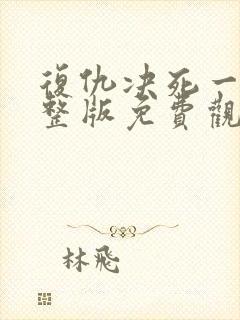 復仇决死一
整版免費觀
林飛